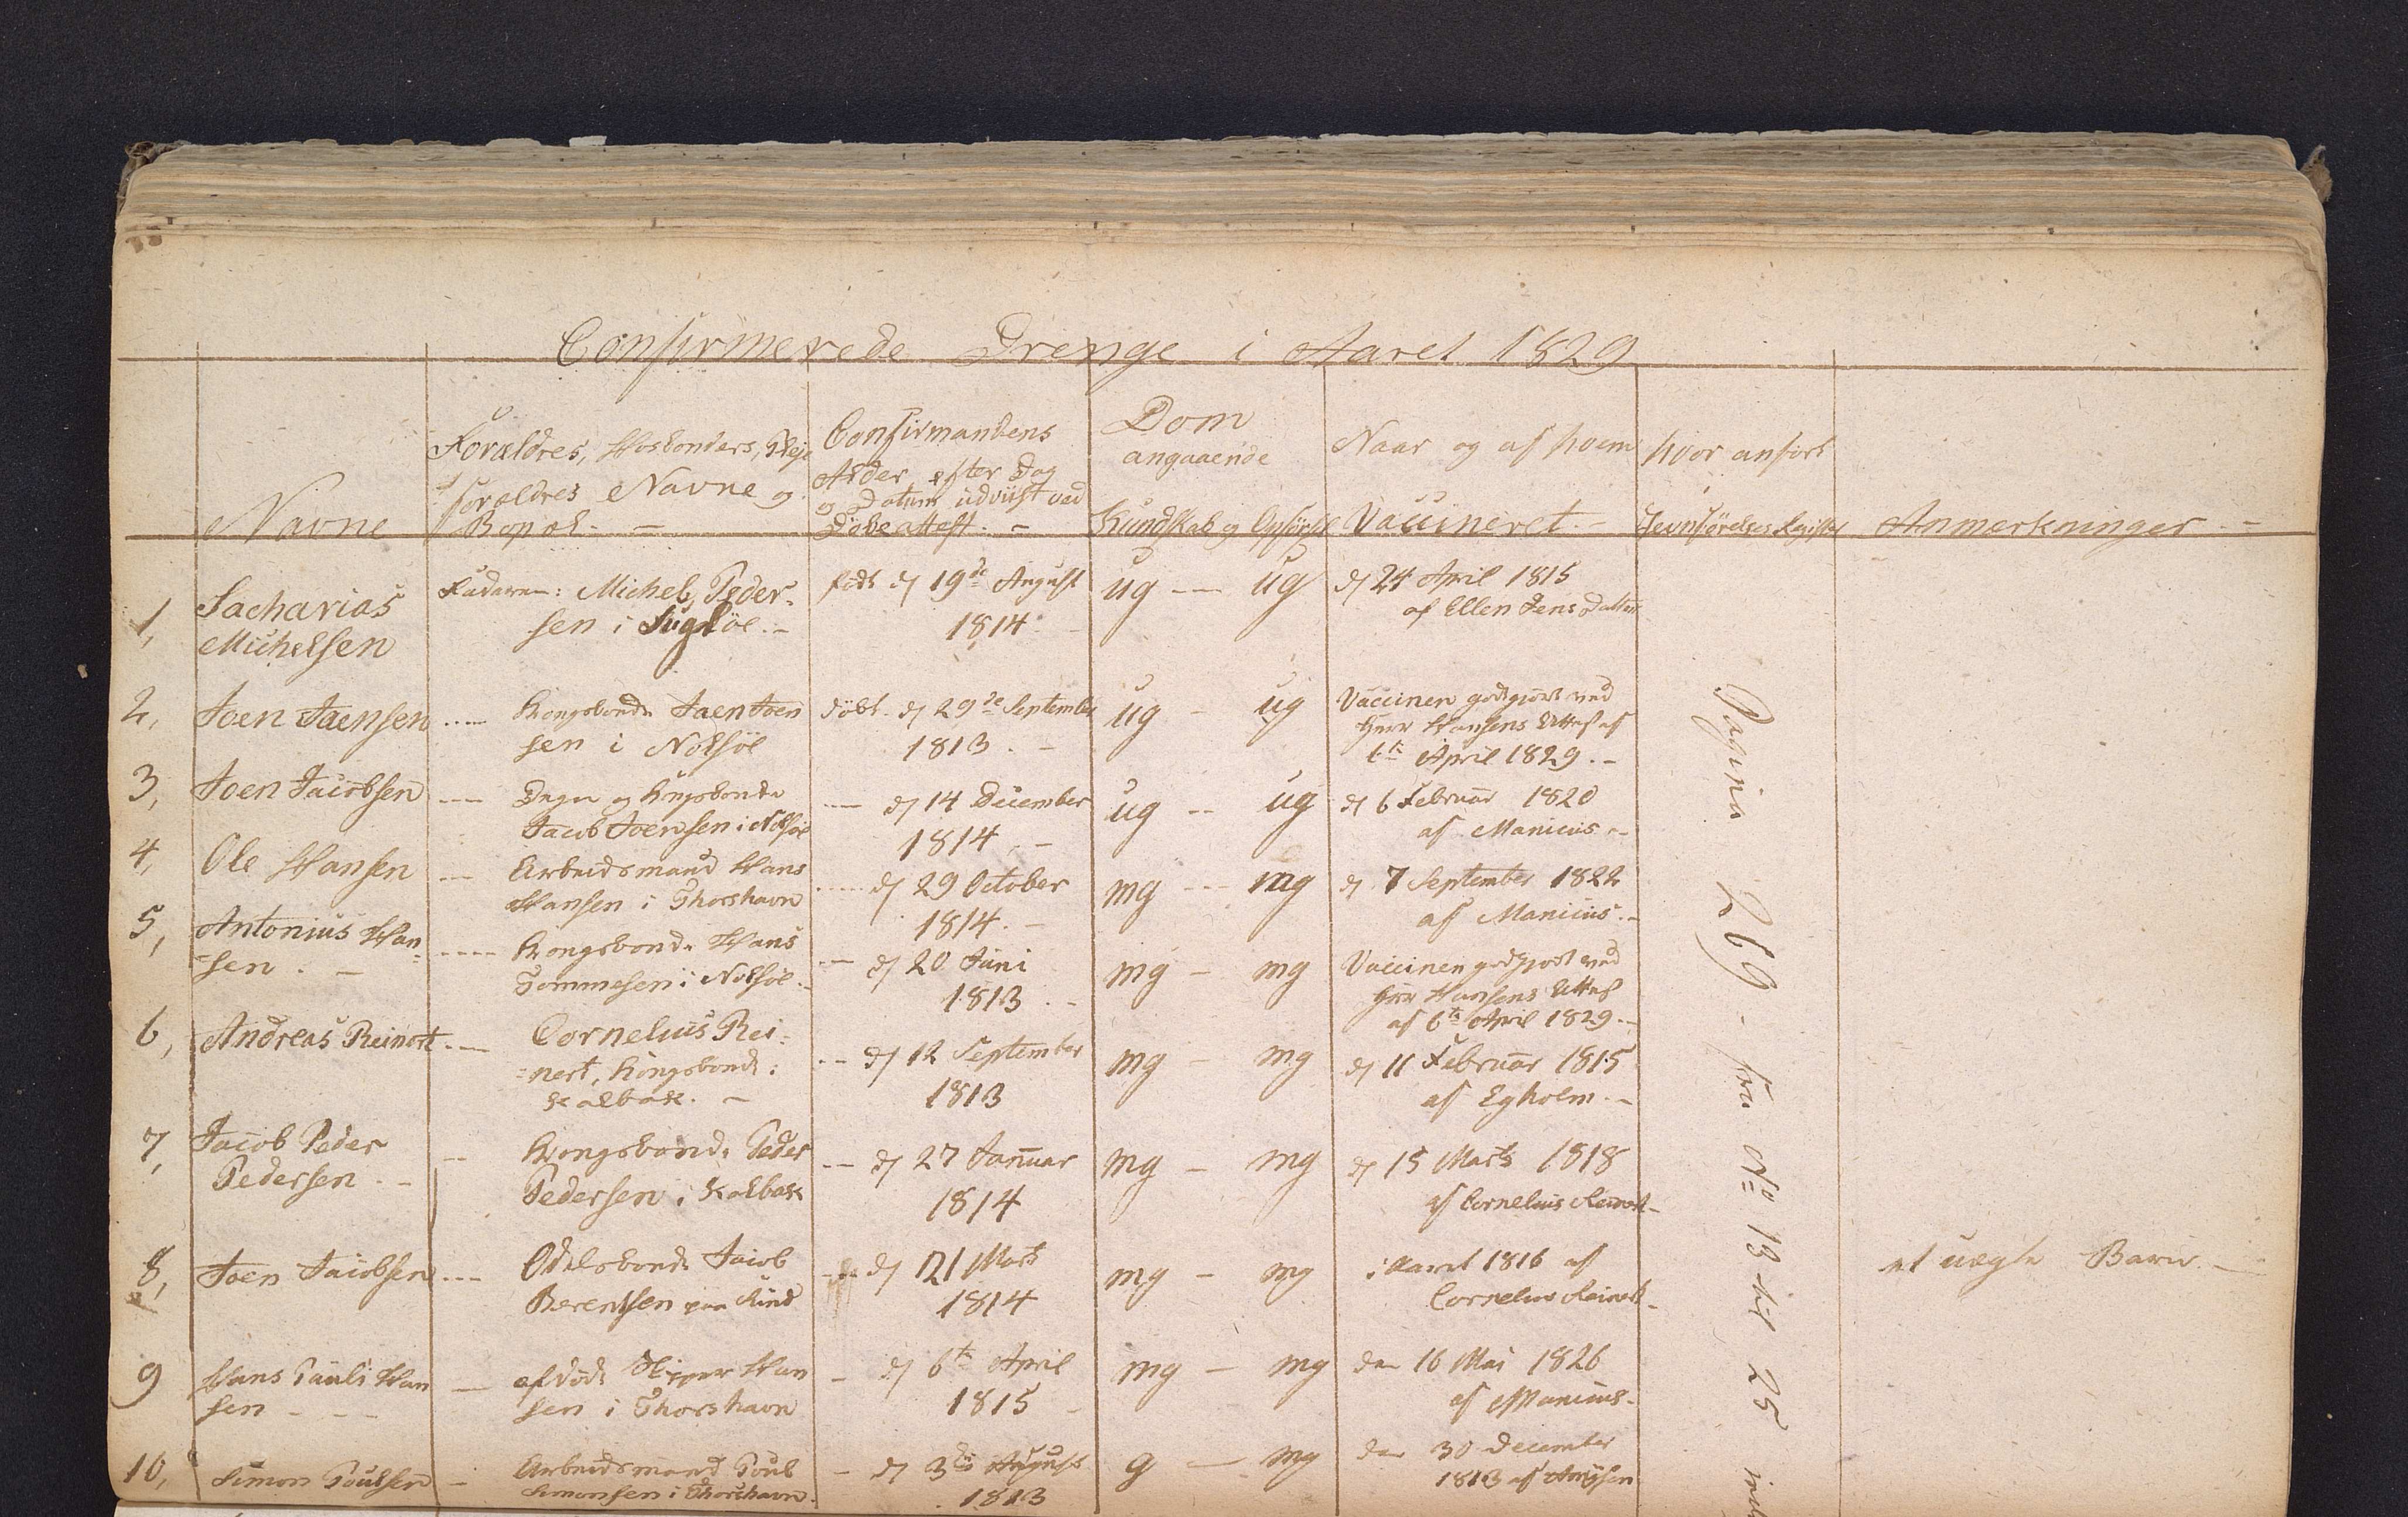 Confirmerede Drenge i Aaret 1829
Navne
Forældres, Hosbonders, Pleje
forældres Navne og
Bopæl. —
Confirmandens
Alder efter Dag
og Datum udviist ved
Döbeattest. —
Dom
angaaende
Kundskab og Opførsel
Naar og af hvem
Vaccineret —
hvor anført
i
Jevnførelses Register
Anmærkninger. —
1,
Sacharias
Michelsen
Faderen: Michel Peder-
sen i
født d 19de August
1814. —
ug --- ug
d 24 April 1815
af Ellen Jensdatter
2,
Joen Jaensen
..... Kongsbonde Jaen Joen
sen i Nolsöe
döbt. d 29de September
1813. —
ug - ug
Vaccinen godtgjort ved
Herr Hansens Attest af
6te April 1829. —
3,
Joen Jacobsen
--- Degn og Kongsbonde
Jacob Joensen i Nolsöe
--- d 14 December
1814. —
ug -- ug
d 6 Februar 1820
af Manicus. —
4,
Ole Hansen
--- Arbeidsmand Hans
Hansen i Thorshavn
..... d 29 October
1814. —
mg --- mg
d 7 September 1822
af Manicus. —
5,
Antonius Han=
=sen. —
---- Kongsbonde Hans
Tommesen i Nolsöe. —
--- d 20 Juni
1813. —
mg - mg
Vaccinen godtgjort ved
Herr Hansens Attest
af 6te April 1829. —
6,
Andreas Reinert
.-- Cornelius Rei=
=nert, Kongsbonde i
Kalbak. —
-- d 12 September
1813
mg - mg
d 11 Februar 1815
af Egholm. —
7,
Jacob Peder
Pedersen. —
-- Kongsbonde Peder
Pedersen i Kalbak
-- d 27 Januar
1814
mg - mg
d 15 Marts 1818
af Cornelius Reinert —
8,
Joen Jacobsen
--- Odelsbonde Jacob
Berentsen paa Sund
--- d 21 Marts
1814
mg - mg
i Aaret 1816 af
Cornelius Reinert —
et uægte Barn. —
9
Hans Pauli Han
sen - - -
— afdöde Han
sen i Thorshavn
- d 6te April
1815 —
mg - mg
den 16 Mai 1826
af Manicus.
10,
Simon Poulsen
- Arbeidsmand Poul
Simonsen i Thorshavn.
- d 3die August
1813
g — mg
den 30 December
1813 af
Pagina 269 - fra No 13 til 25